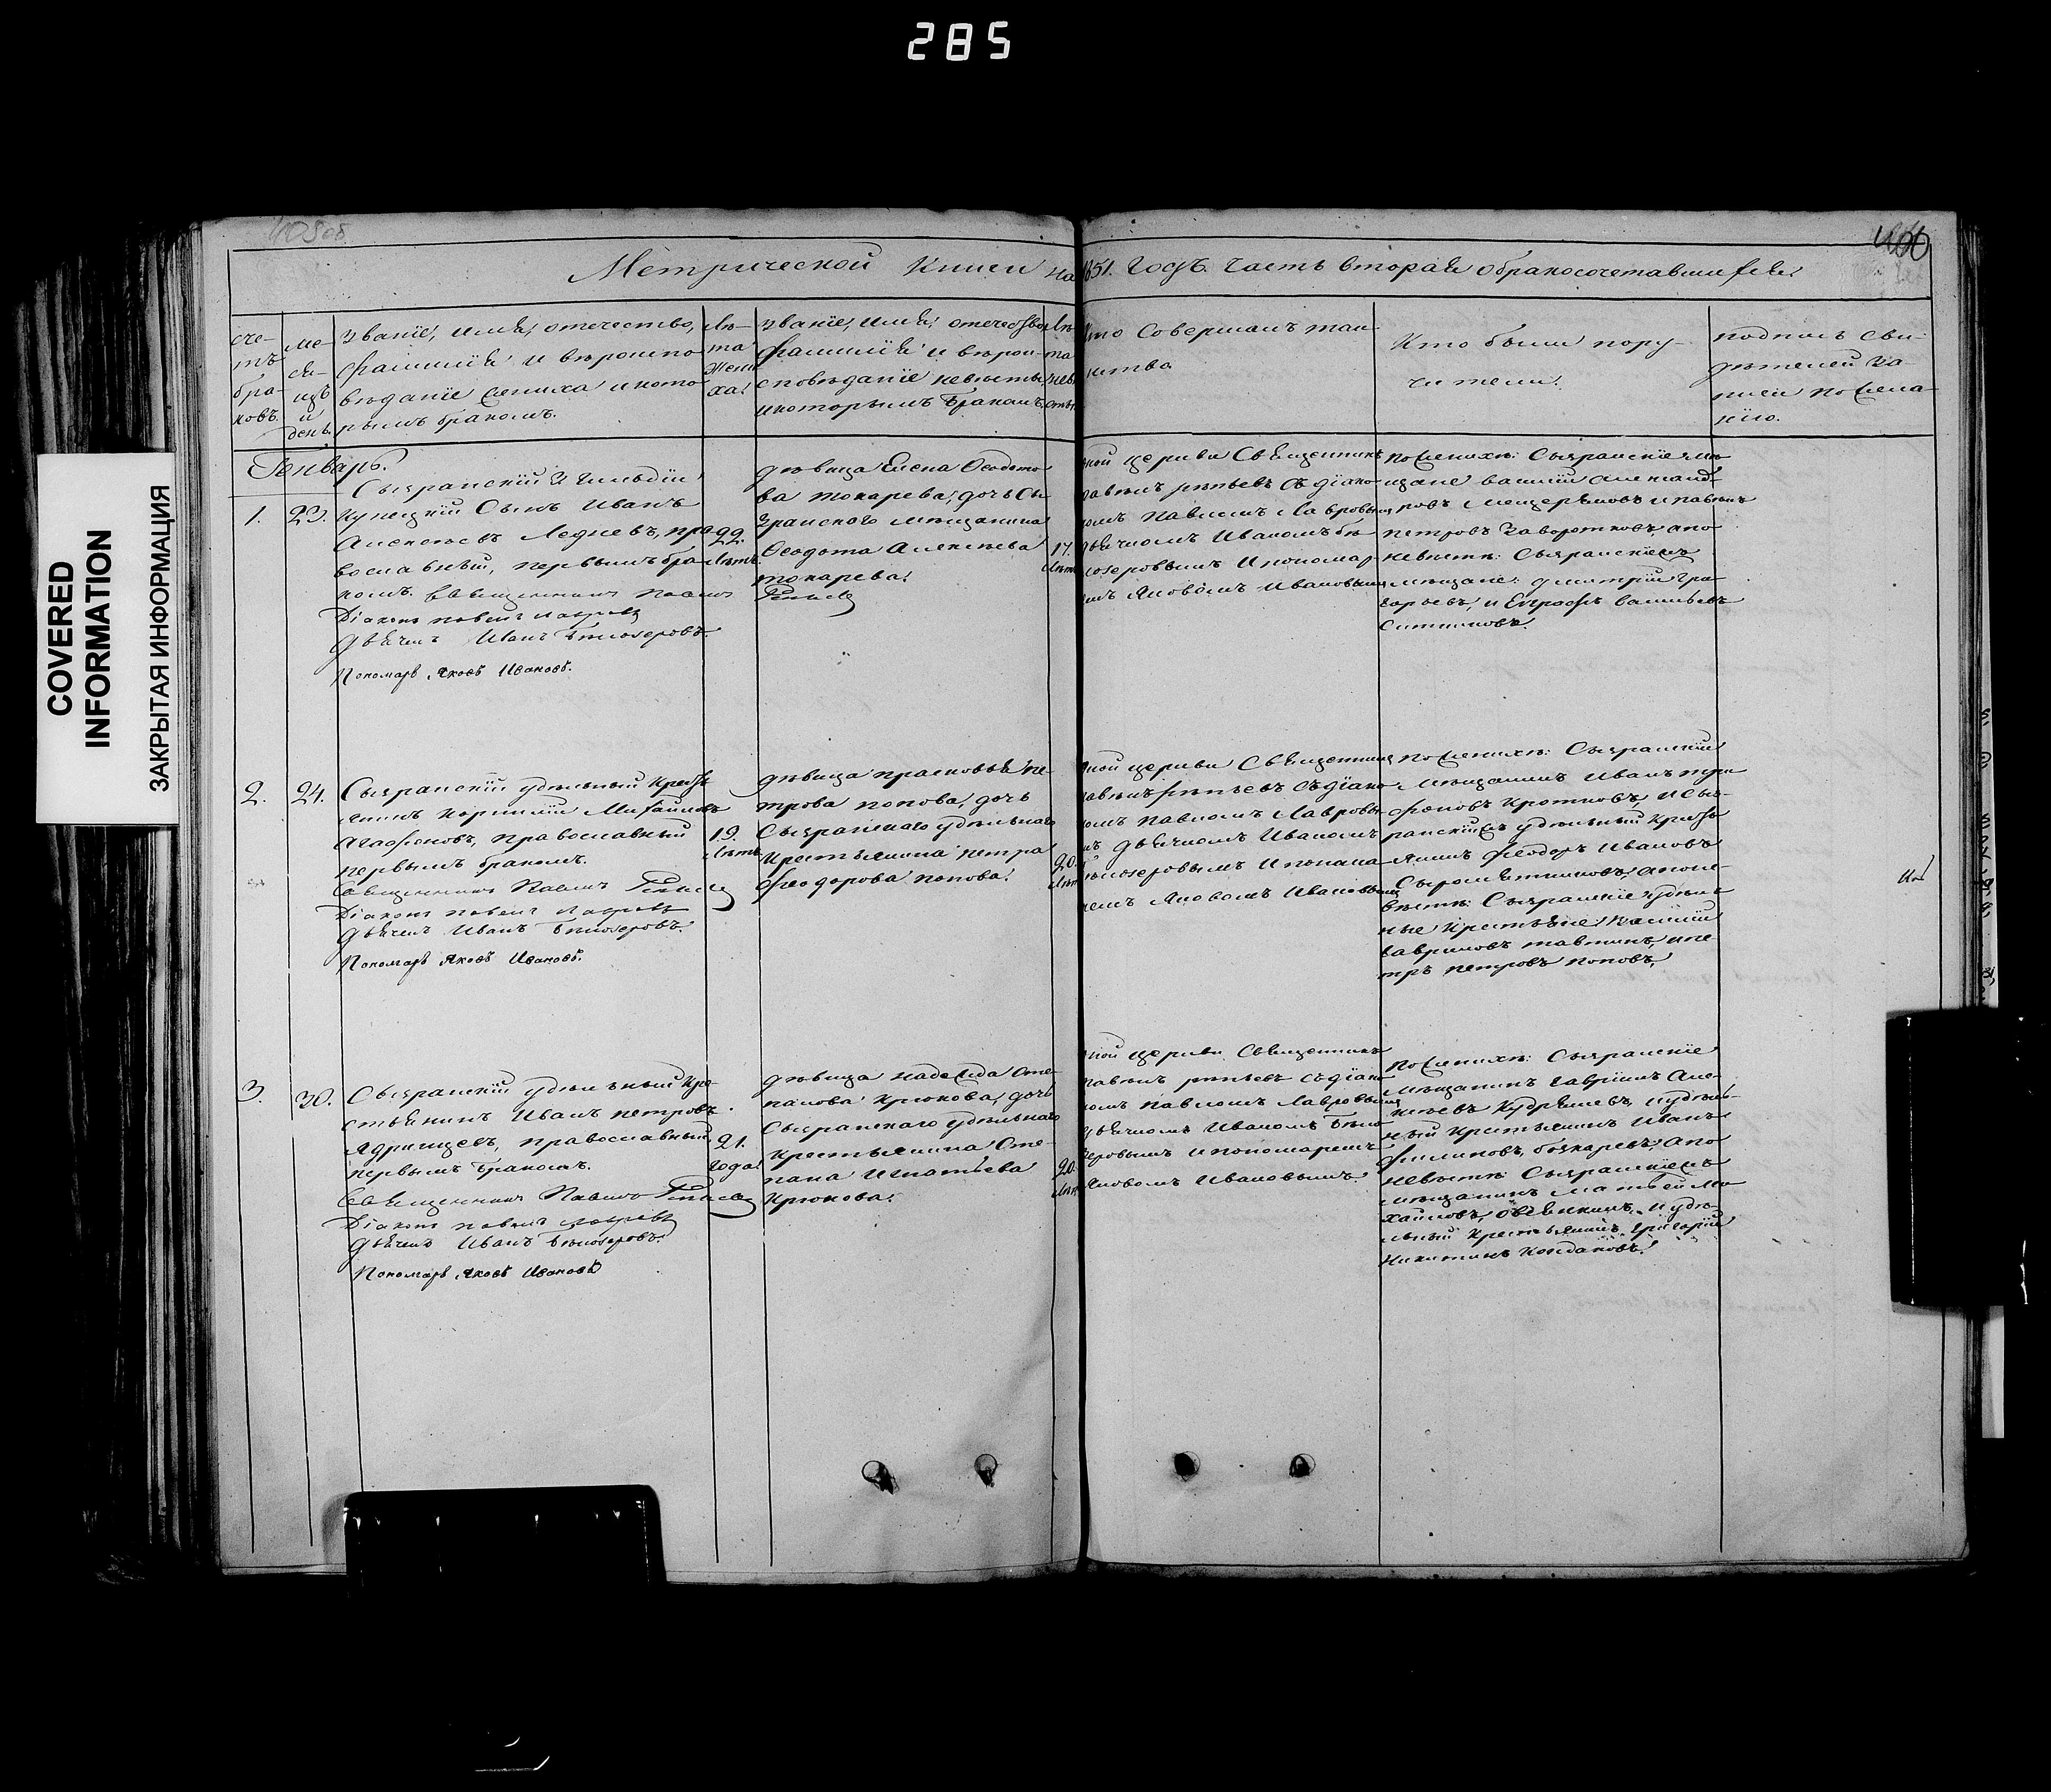 285
COVERED
INFORMATION
ЗАКРЫТАЯ ИНФОРМАЦИЯ
Метрической Книги на 1851. годъ. Часть вторая о бракосочетавшихся.
сче-
тъ
бра-
ковъ.
ме-
ся-
цъ
и
день.
Званіе, имя, отечество,
фамилія и вѣроиспо-
вѣданіе жениха и кото-
рымъ бракомъ.
Лѣ-
та
жени
ха.
Званіе, имя, отечество,
фамилія и вѣрои-
сповѣданіе невѣсты
и которымъ бракомъ.
Лѣ
та
невѣ
сты.
Кто совершалъ таи
нство
Кто были пору-
чители.
подпись сви-
дѣтелей за-
писи по жела-
нію.
Генварь.
1.
23.
Сызранскій гильдіи
Купецкій Сынъ Иванъ
Алексѣевъ Леднев, пра
вославный, первымъ бра
комъ. Священникъ Павелъ
Діаконъ Павелъ Лавровъ
Дьячекъ Иванъ Бѣлозеровъ.
Пономарь Яковъ Ивановъ.
22.
Лѣтъ.
дѣвица Елена Ѳеодото
ва Токарева, дочь Сы
зранского мѣщанина
Ѳеодота Алексѣева
Токарева.
17.
Лѣтъ
ной церкви Священникъ
Павелъ съ діако
номъ Павломъ Лавровым
дьячкомъ Иваномъ Бѣ
лозеровымъ и понома-
ремъ Яковомъ Ивановым
по женихѣ: Сызранскіе мѣ
щане Василій Александ-
ровъ Мещеряковъ и Павелъ
Петровъ Заворотковъ, а по
невѣстѣ: Сызранскіежъ
мѣщане: Димитрій Гри
горьевъ, и Евграфъ Васильевъ
Ситниковы.
2.
24.
Сызранскій удѣльный Крестья
нинъ Корнилій Михайловъ
Агафоновъ, православный
первымъ бракомъ.
Священникъ Павелъ
Діаконъ Павелъ Лавровъ
Дьячекъ Иванъ Бѣлозеровъ.
Пономарь Яковъ Ивановъ.
19.
Лѣтъ
дѣвица Прасковья Пе-
трова Попова, дочь
Сызранского удѣльнаго
Крестьянина Петра
Ѳеодорова Попова.
20.
Лѣтъ
ной церкви Священник
Павелъ съ діако
номъ Павломъ Лавровы
мъ дьячкомъ Иваномъ
Бѣлозеровымъ и понома
ремъ Яковомъ Ивановым
по женихѣ: Сызранскій
мѣщанинъ Иванъ Три
фоновъ Кротковъ, и Сыз-
ранскійжъ удѣльный Кресть
янинъ Ѳеодоръ Ивановъ
Сыромятниковъ, а по не-
вѣстѣ: Сызранскіе удѣль
ные Крестьяне: Василій
Гавриловъ Тавлинъ, и Пе-
тръ Петровъ Поповъ,
3.
30.
Сызранскій удѣльный Кре-
стьянинъ Иванъ Петровъ
Ядринцевъ, православный
первымъ бракомъ.
Священникъ Павелъ
Діаконъ Павелъ Лавровъ
Дьячекъ Иванъ Бѣлозеровъ.
Пономарь Яковъ Ивановъ
21.
года
дѣвица Надежда Сте-
панова Крюкова, дочь
Сызранского удѣльнаго
Крестьянина Сте-
пана Игнатьева
Крюкова.
20.
Лѣтъ
ной церкви Священникъ
Павелъ съ діако
номъ Павломъ Лавровым
дьячкомъ Иваномъ Бѣло
зеровымъ и пономаремъ
Яковомъ Ивановымъ
по женихѣ: Сызранскіе
мѣщанинъ Гавріилъ Але-
ксѣевъ Кудряшевъ, и удѣль-
ный Крестьянинъ Иванъ
Филиповъ, Бочкаревъ, а по
невѣстѣ: Сызранскіежъ
мѣщанинъ Матвей Ми
хайловъ, Овсянкинъ, и удѣ-
льный Крестьянинъ, Григорій
Никитинъ Кондаковъ.